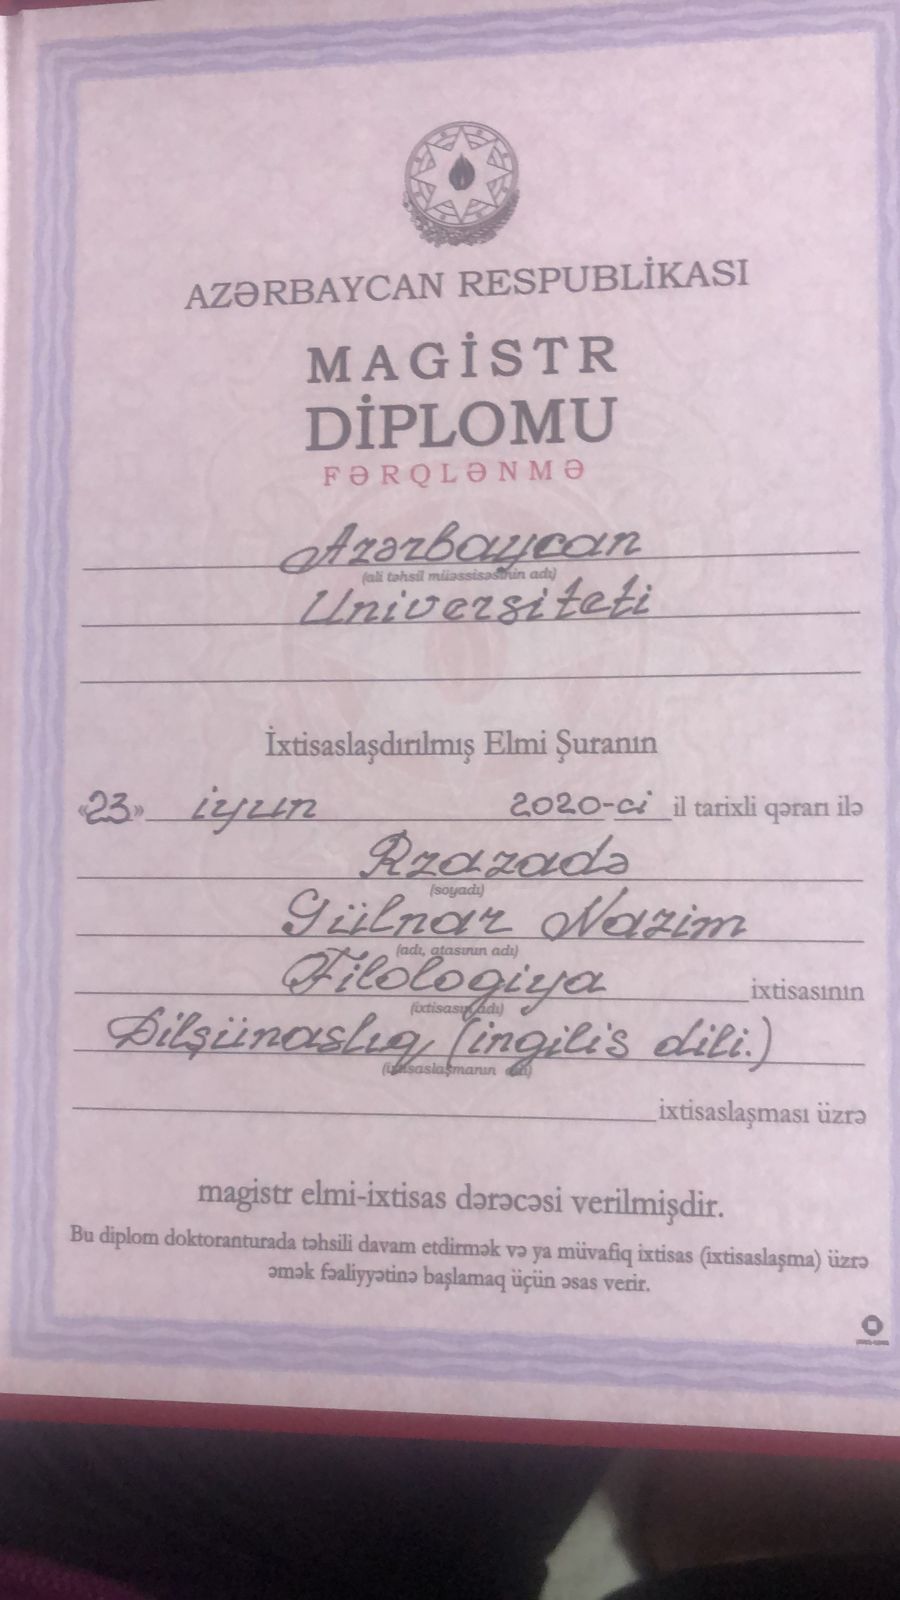 AZƏRBAYCAN RESPUBLİKASI
MAGİSTR
DİPLOMU
FƏRQLƏNMƏ
Azərbaycan
(ali təhsil müəssisəsinin adı)
Universiteti
İxtisaslaşdırılmış Elmi Şuranın
«23» iyun 2020-ci il tarixli qərarı ilə
Rzazadə
(soyadı)
Gülnar Nazim
(adı, atasının adı)
Filologiya ixtisasının
(ixtisasın adı)
Dilşünaslıq (ingilis dili.)
(ixtisaslaşmanın adı)
ixtisaslaşması üzrə
magistr elmi-ixtisas dərəcəsi verilmişdir.
Bu diplom doktoranturada təhsili davam etdirmək və ya müvafiq ixtisas (ixtisaslaşma) üzrə
əmək fəaliyyətinə başlamaq üçün əsas verir.